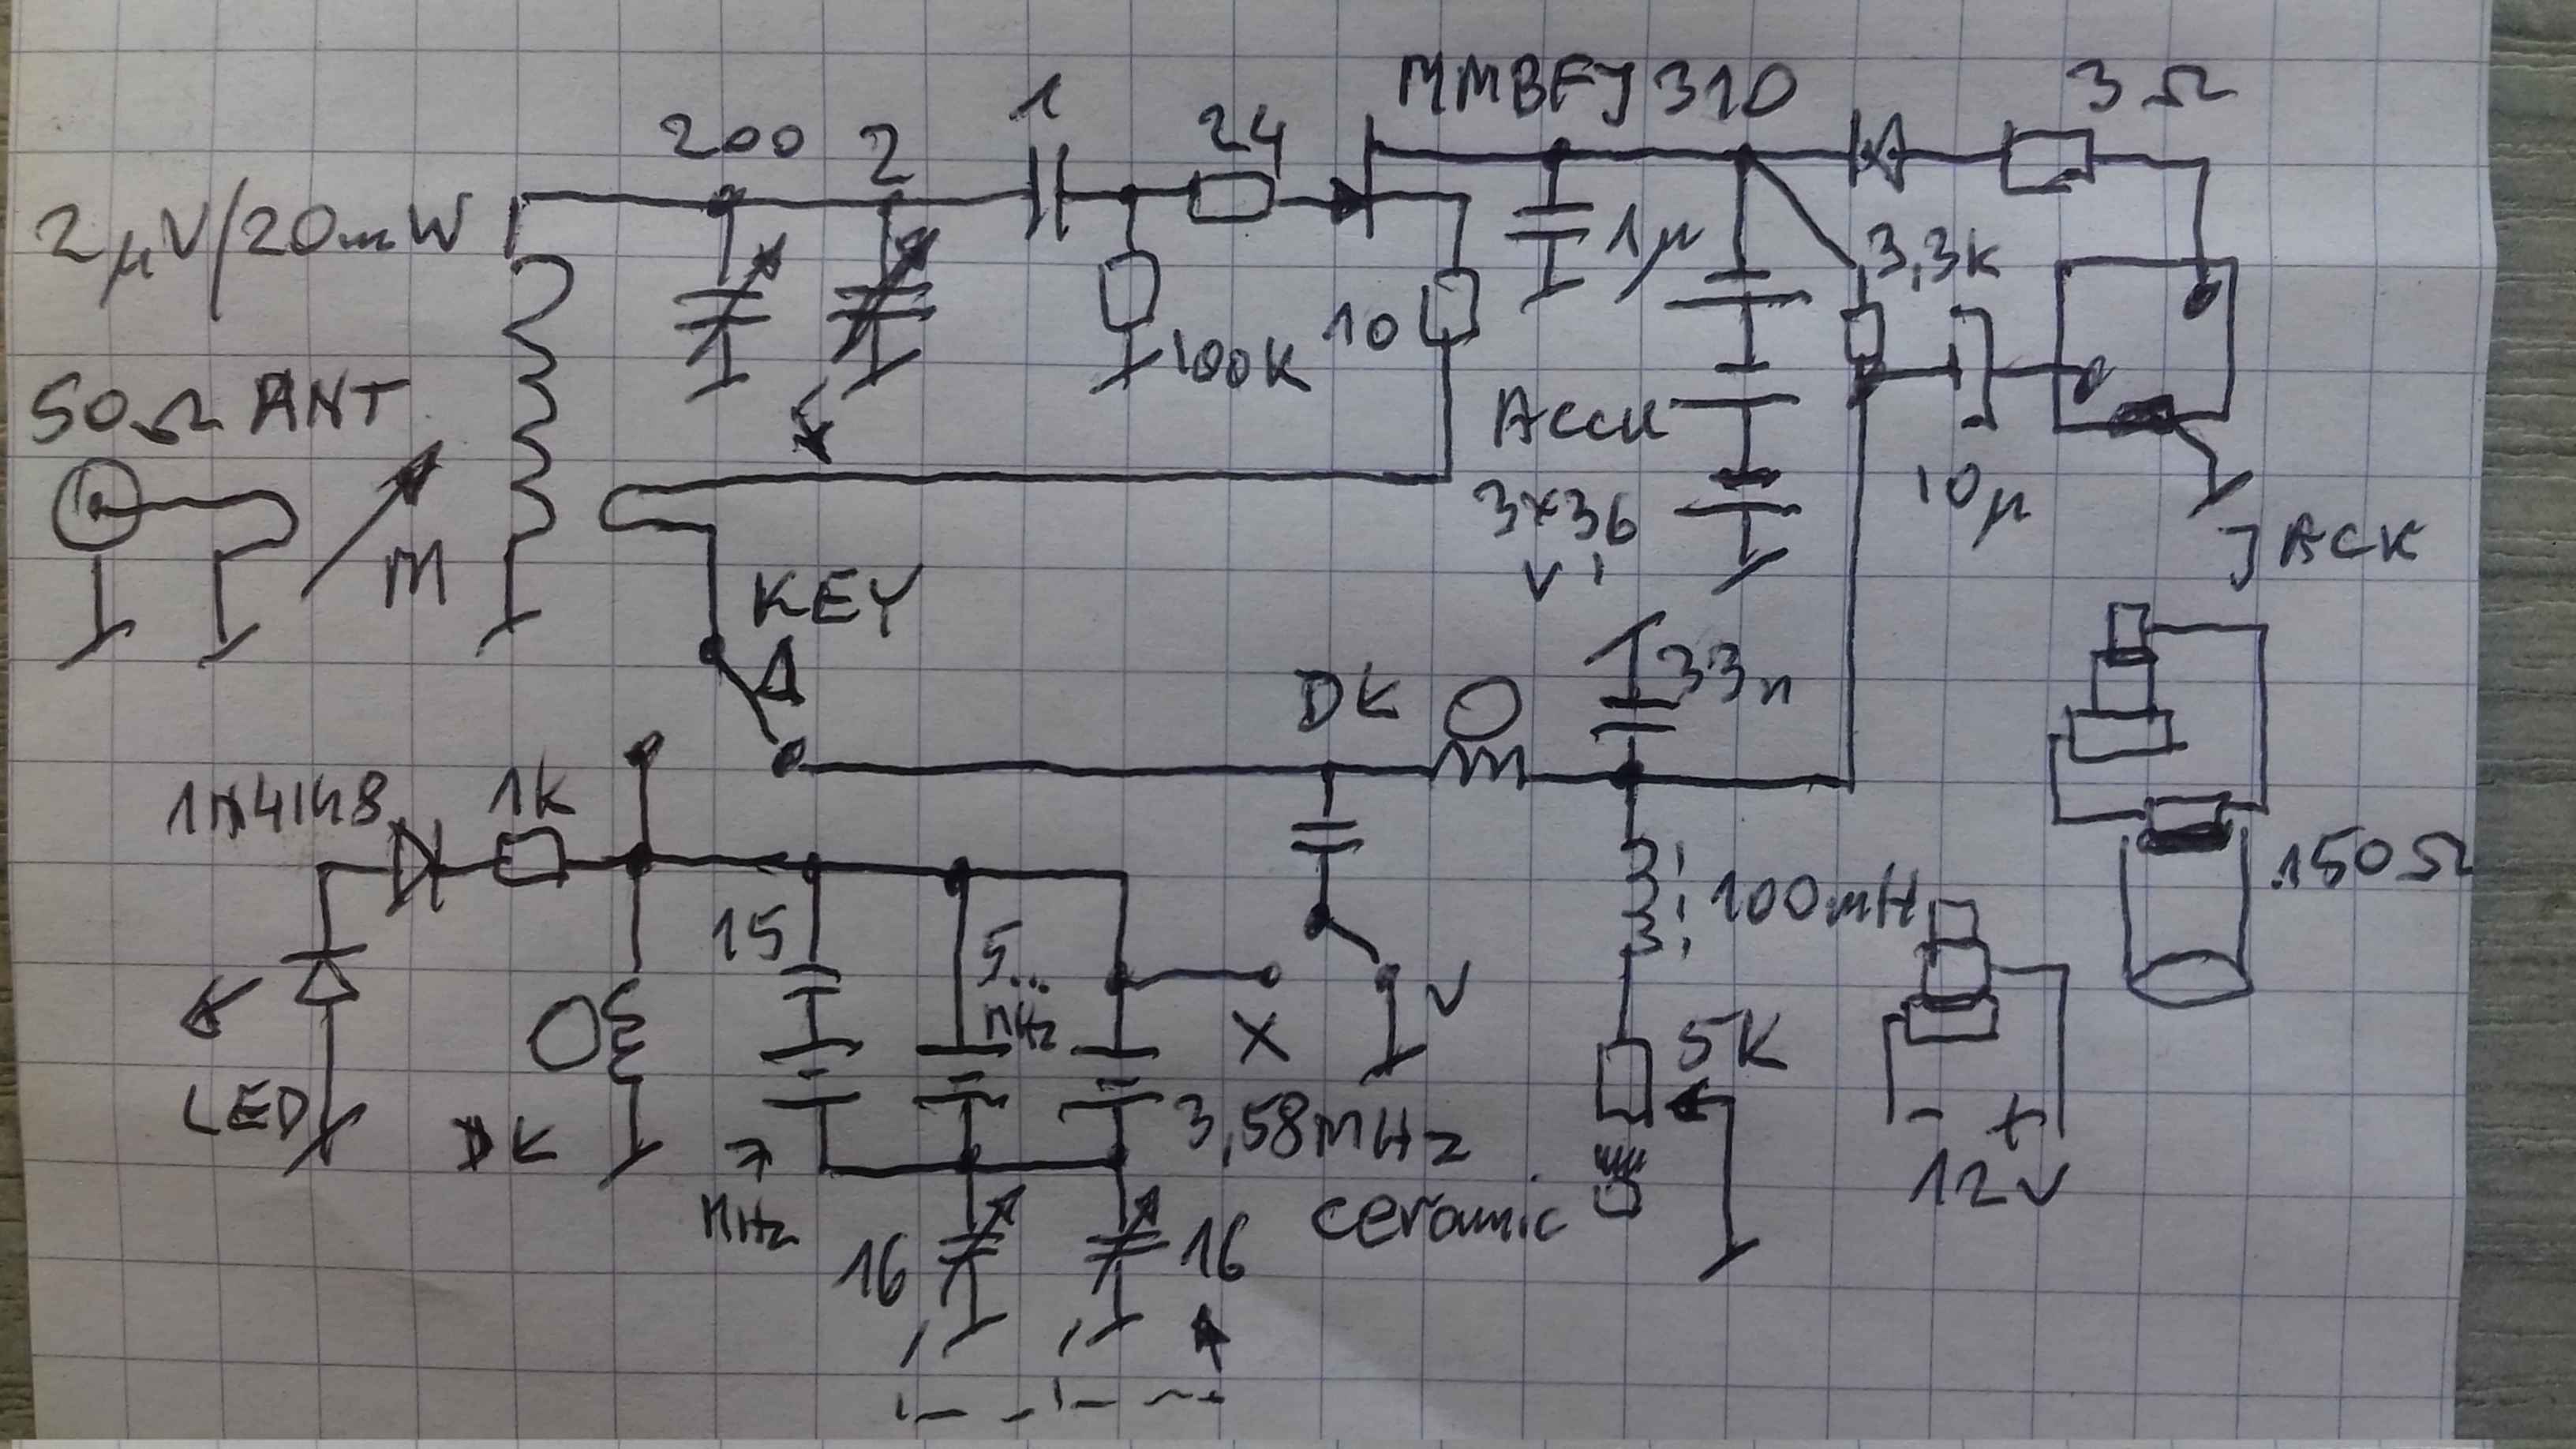 MMBFJ310
3Ω
1
200
2
24
2µV/20mW
1µ
3,3K
100K
10
50Ω ANT
Accu
3x36
V
10µ
JACK
M
KEY
33n
DK
1N4148
1k
150Ω
15
5..
MHz
100mH
X
V
5K
LED
DK
7
MHz
3,58MHz
ceramic
- +
12V
16
16